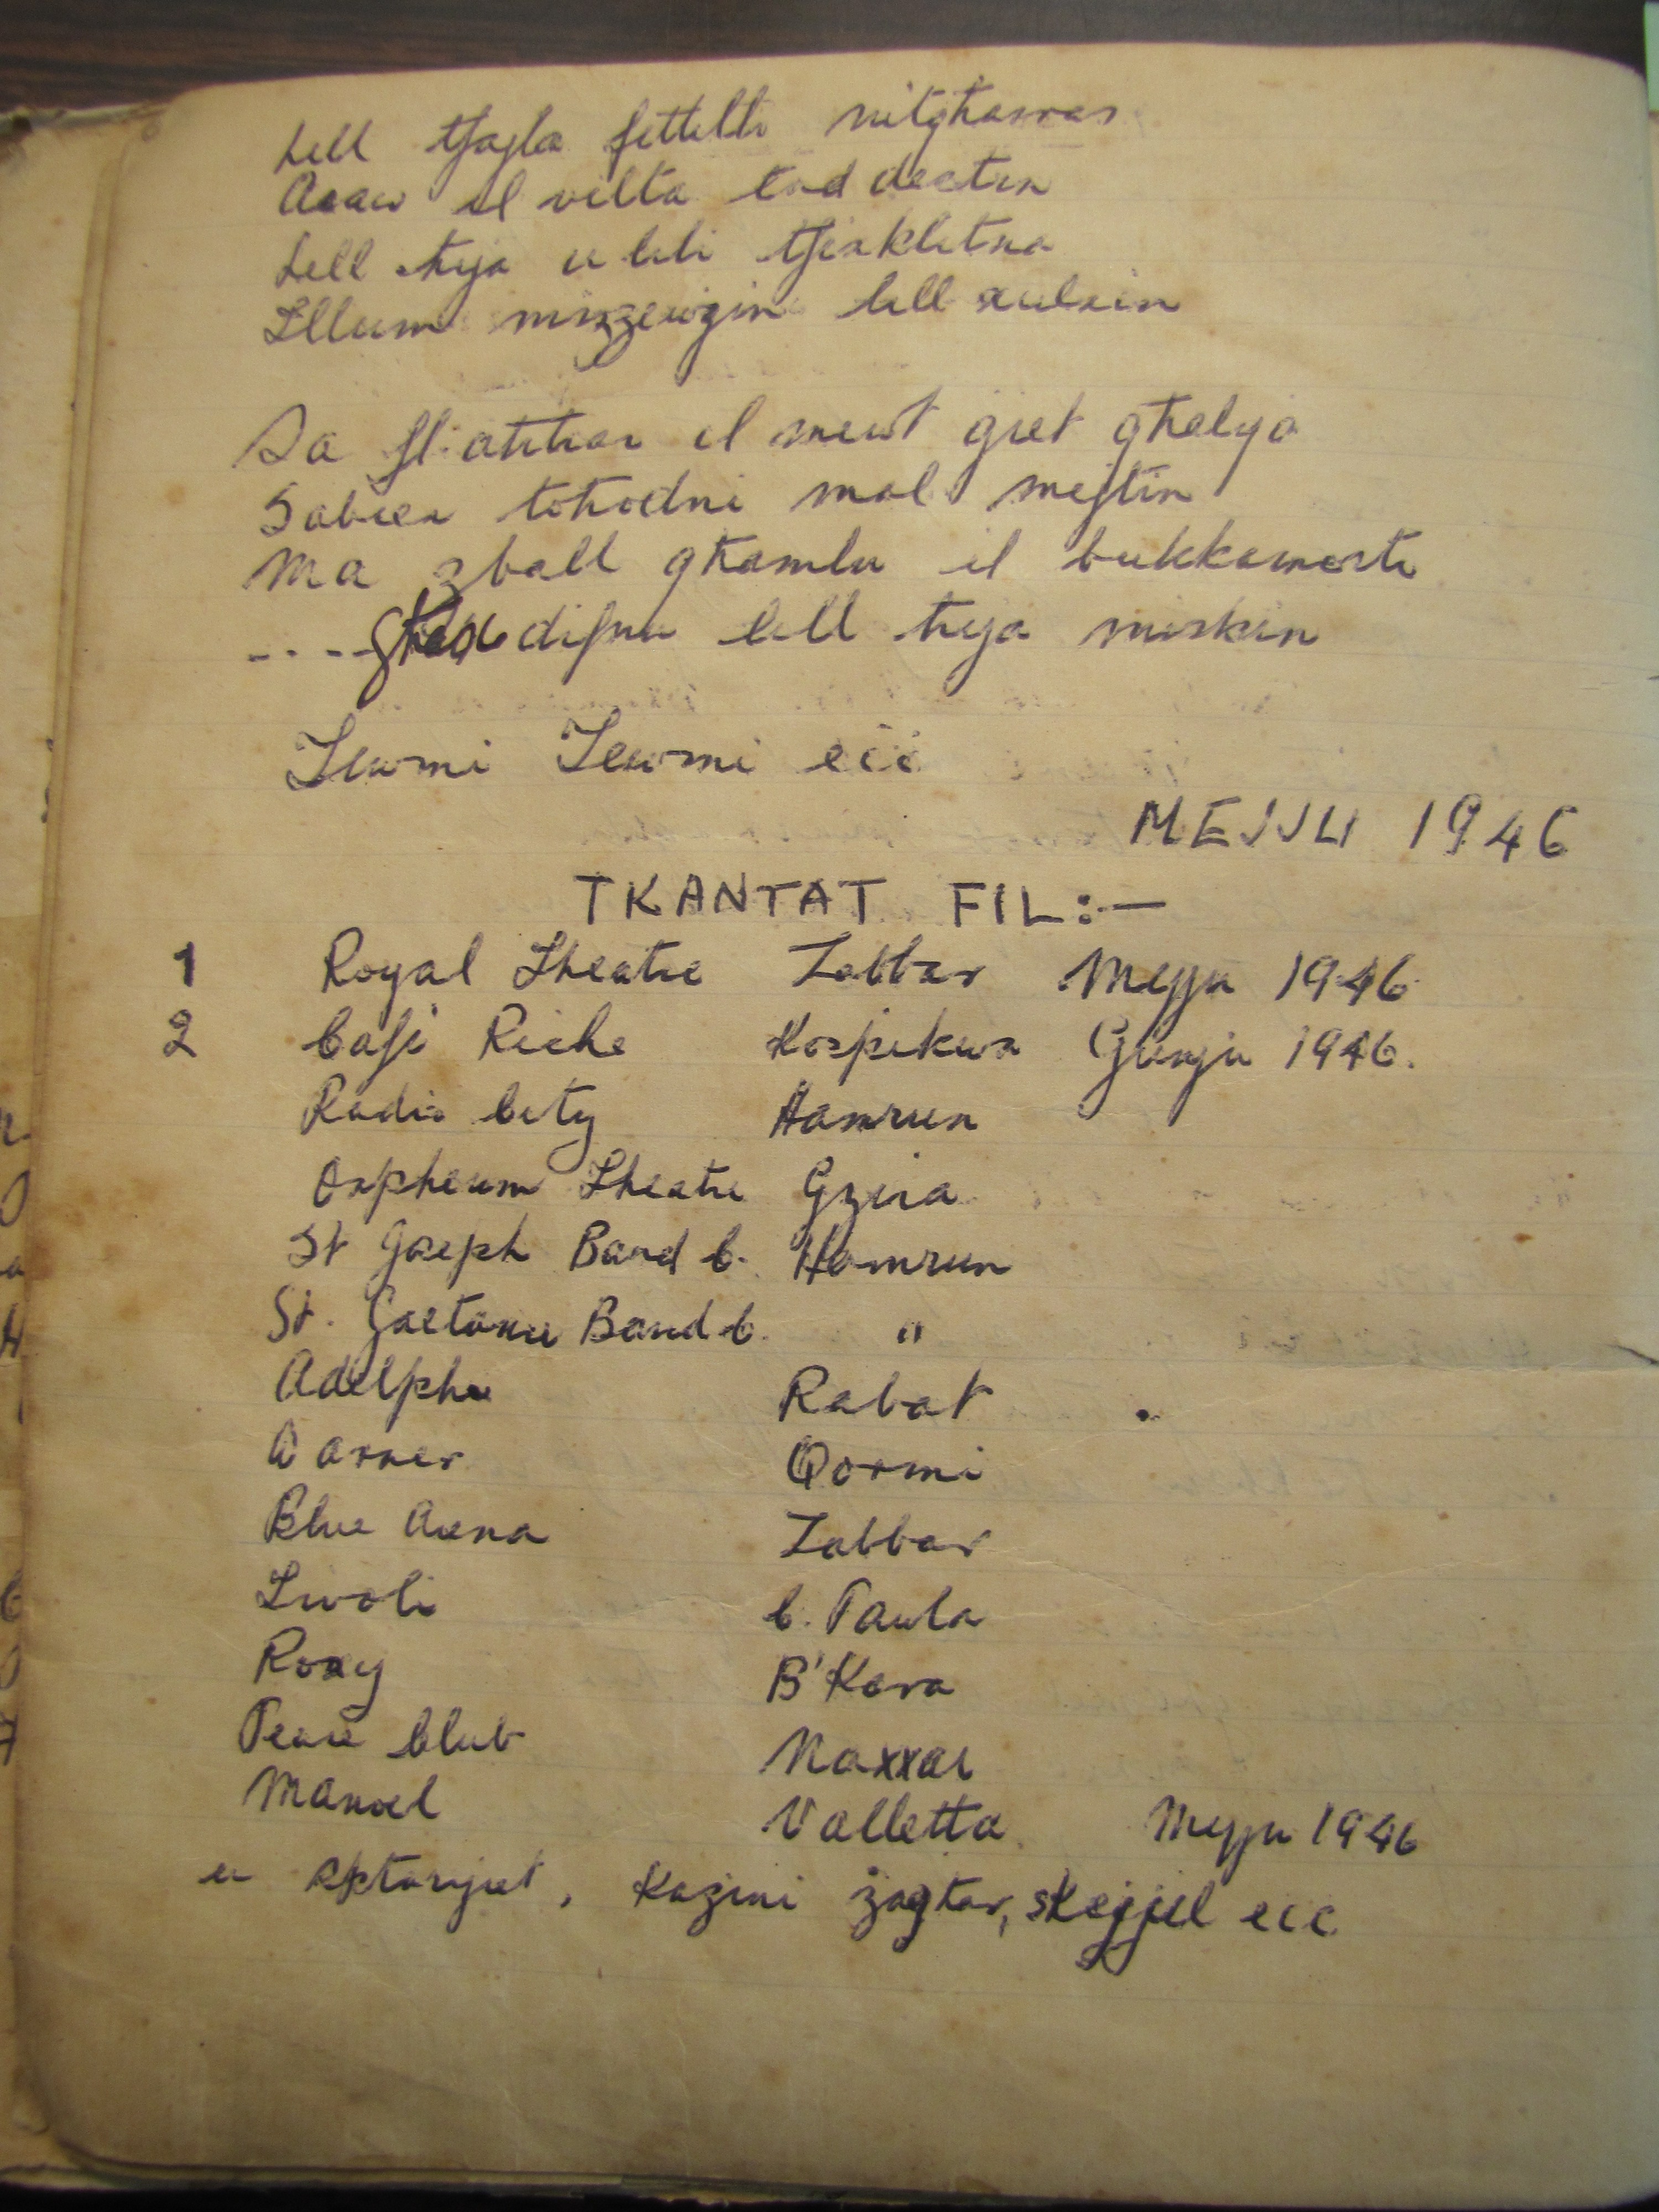 lill tfajla fettilli nitgħawar
Araw il volta tad destin
lill ħija u lili tfixklitna
Illum mizzewgin lill xulxin
Sa fl-aħħar il mewt giet għalija
Sabiex toħodni mal mejtin
Ma zball għamlu il bukkamorti
....Għax difnu lill ħija miskin
Iewmi Iewmi eċċ
MEJJU 1946
TKANTAT FIL:-
1 Royal Theatre Zabbar Mejju 1946
2 Cafe Riche Kospikwa Gunju 1946.
Radio City Hamrun
Orpheum Theatre Gzira
St Joseph Band C. Hamrun
St. Gaetanu Band C. "
Adelphi Rabat
Warner Qormi
Blue Arena Zabbar
Tivoli C. Paula
Roxy B'Kara
Peace Club Naxxar
Manoel Valletta Mejju 1946
u sptarijiet, Kazini żagħar, skejjel eċċ